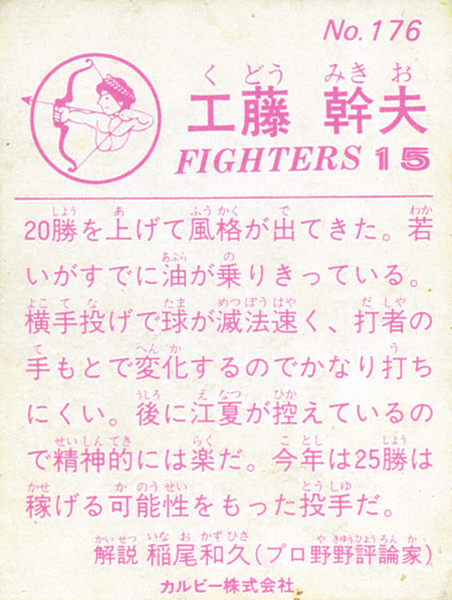 No.176
くどう みきお
工藤 幹夫
FIGHTERS 15
20勝を上げて風格が出てきた。若
いがすでに油が乗りきっている。
横手投げで球が滅法速く、打者の
手もとで変化するのでかなり打ち
にくい。後に江夏が控えているの
で精神的には楽だ。今年は25勝は
稼げる可能性をもった投手だ。
解説 稲尾和久(プロ野野評論家)
カルビー株式会社